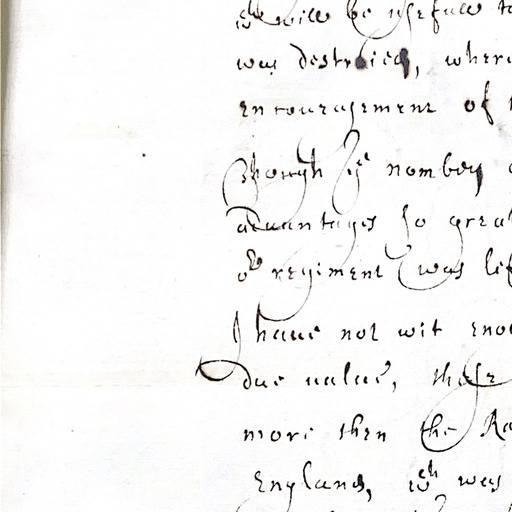 wch will be usefull to
was destroied, where
encouragement of
Though ye nomber
advantages so grea
or regiment was lef
I haue not wit eno
due value, these
more then the Ra
England, wch was